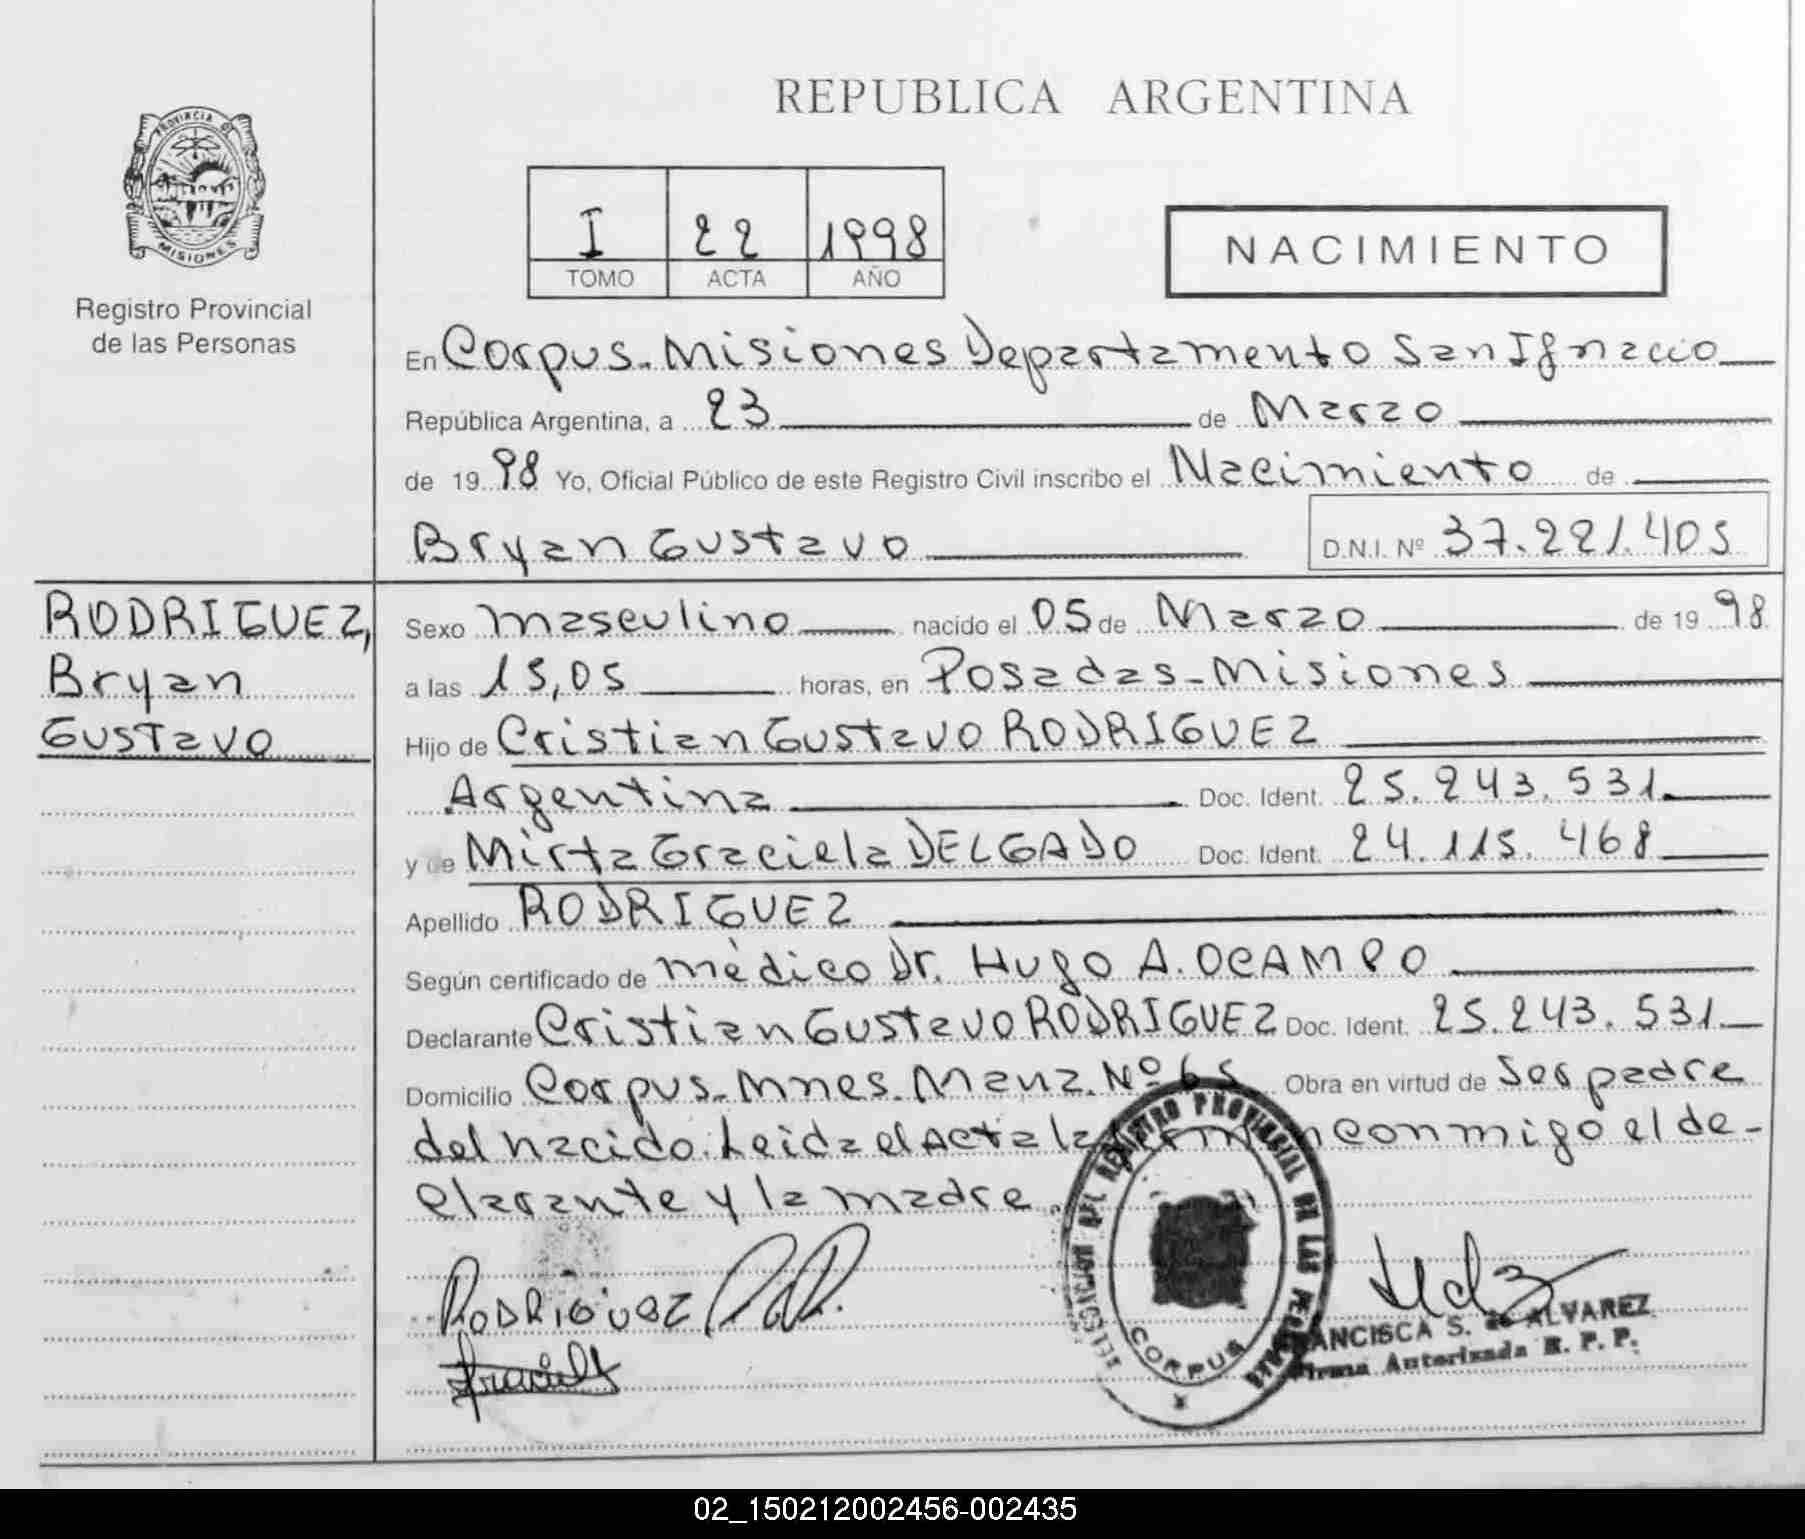 REPUBLICA ARGENTINA
PROVINCIA DE
MISIONES
Registro Provincial
de las Personas
I 22 1998
TOMO ACTA AÑO
NACIMIENTO
En Corpus-Misiones Departamento San Ignacio
República Argentina, a 23 de Marzo
de 1998 Yo, Oficial Público de este Registro Civil inscribo el Nacimiento de
Bryan Gustavo D.N.I. Nº 37.221.405
RODRIGUEZ,
Bryan
Gustavo
Sexo masculino nacido el 05 de Marzo de 1998
a las 15,05 horas, en Posadas-Misiones
Hijo de Cristian Gustavo RODRIGUEZ
Argentina Doc. Ident. 25.243.531.
y de Mirta Graciela DELGADO Doc. Ident. 24.115.468
Apellido RODRIGUEZ
Según certificado de médico Dr. Hugo A. OCAMPO
Declarante Cristian Gustavo RODRIGUEZ Doc. Ident. 25.243.531.
Domicilio Corpus-Mnes. Manz. Nº 65 Obra en virtud de Ser padre
del nacido. Leida el Acta la firman conmigo el de-
clarante y la madre
RODRIGUEZ
Graciela
REGISTRO PROVINCIAL DE LAS PERSONAS
CORPUS
FRANCISCA S. de ALVAREZ
Firma Autorizada R. P. P.
02_150212002456-002435